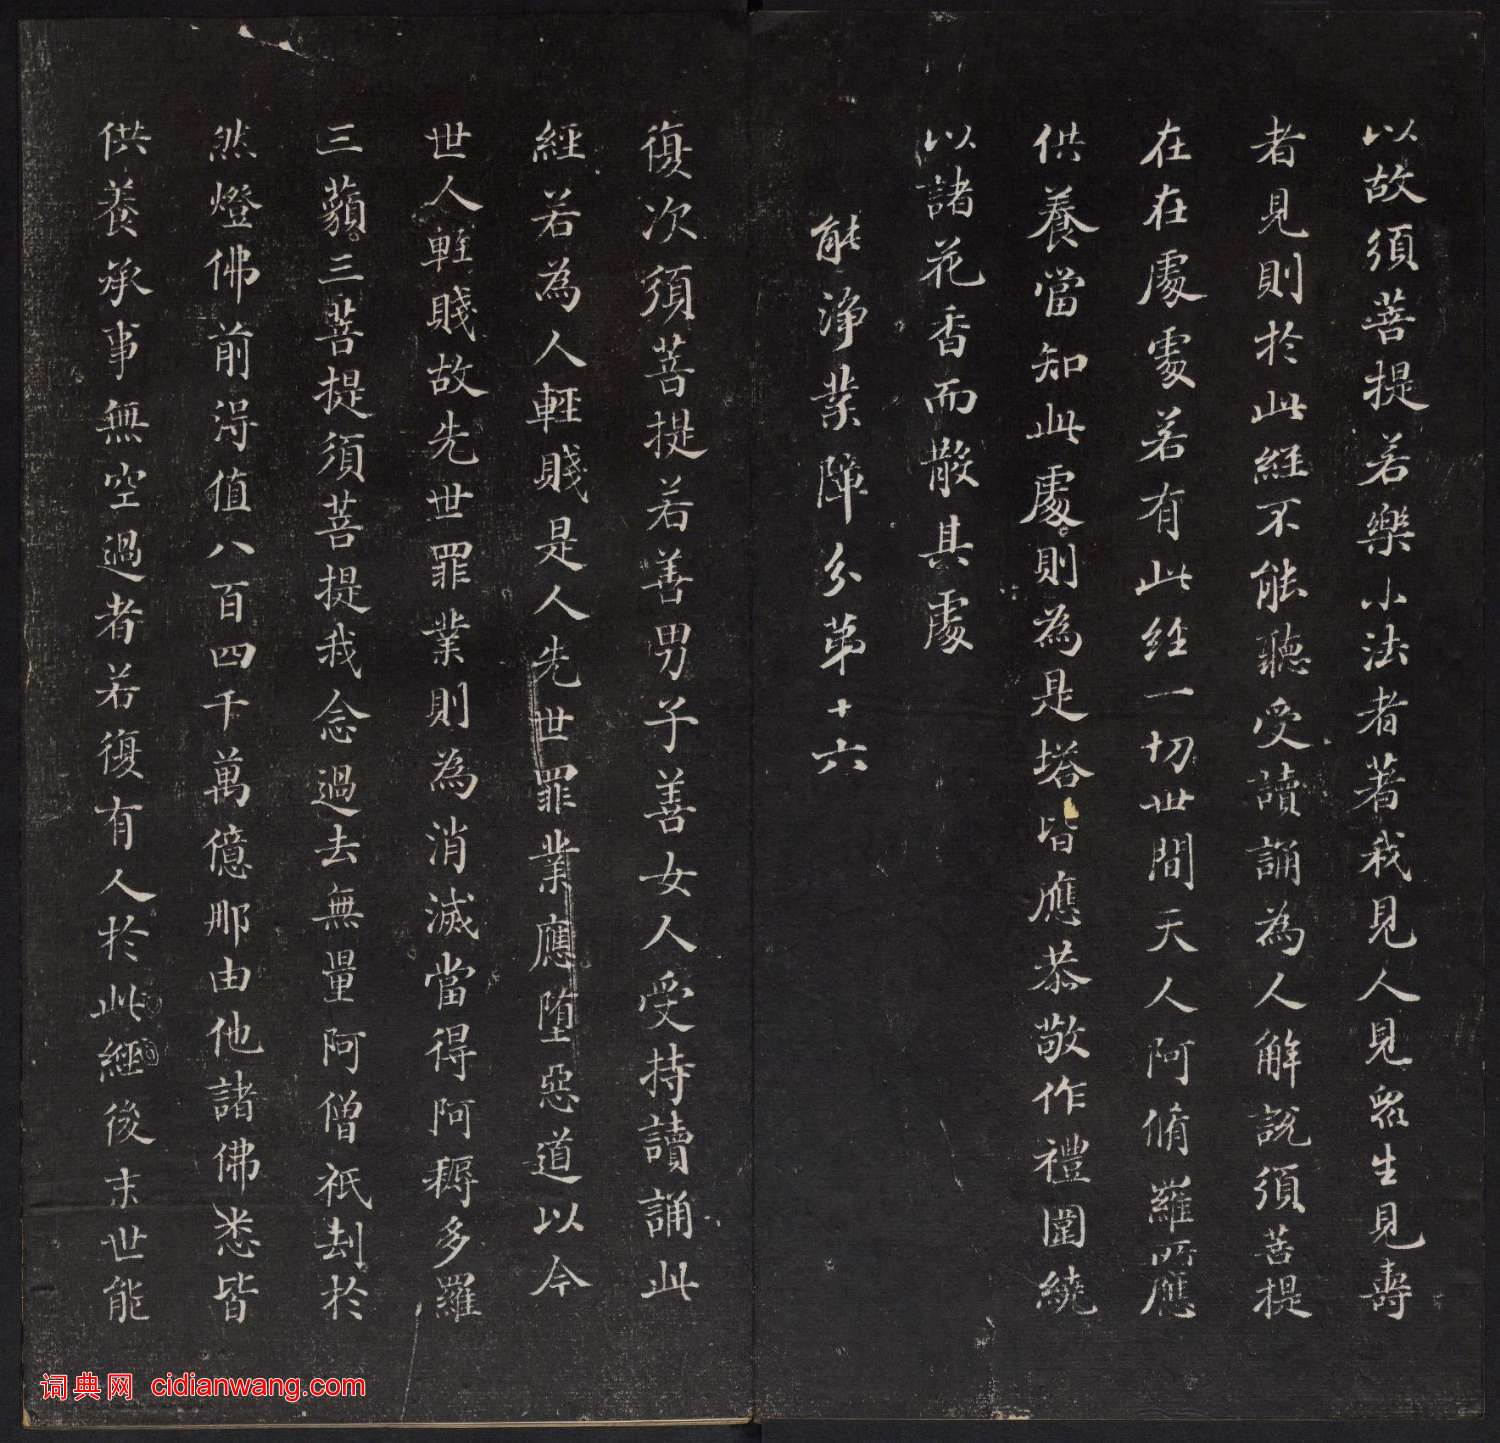 以故須菩提若樂小法者著我見人見眾生見壽
者見則於此經不能聽受讀誦為人解說須菩提
在在處處若有此經一切世間天人阿脩羅所應
供養當知此處則為是塔皆應恭敬作禮圍繞
以諸花香而散其處
能淨業障分第十六
復次須菩提若善男子善女人受持讀誦此
經若為人輕賤是人先世罪業應墮惡道以今
世人輕賤故先世罪業則為消滅當得阿耨多羅
三藐三菩提須菩提我念過去無量阿僧祇劫於
然燈佛前得值八百四千萬億那由他諸佛悉皆
供養承事無空過者若復有人於此經後末世能
词典网 cidianwang.com